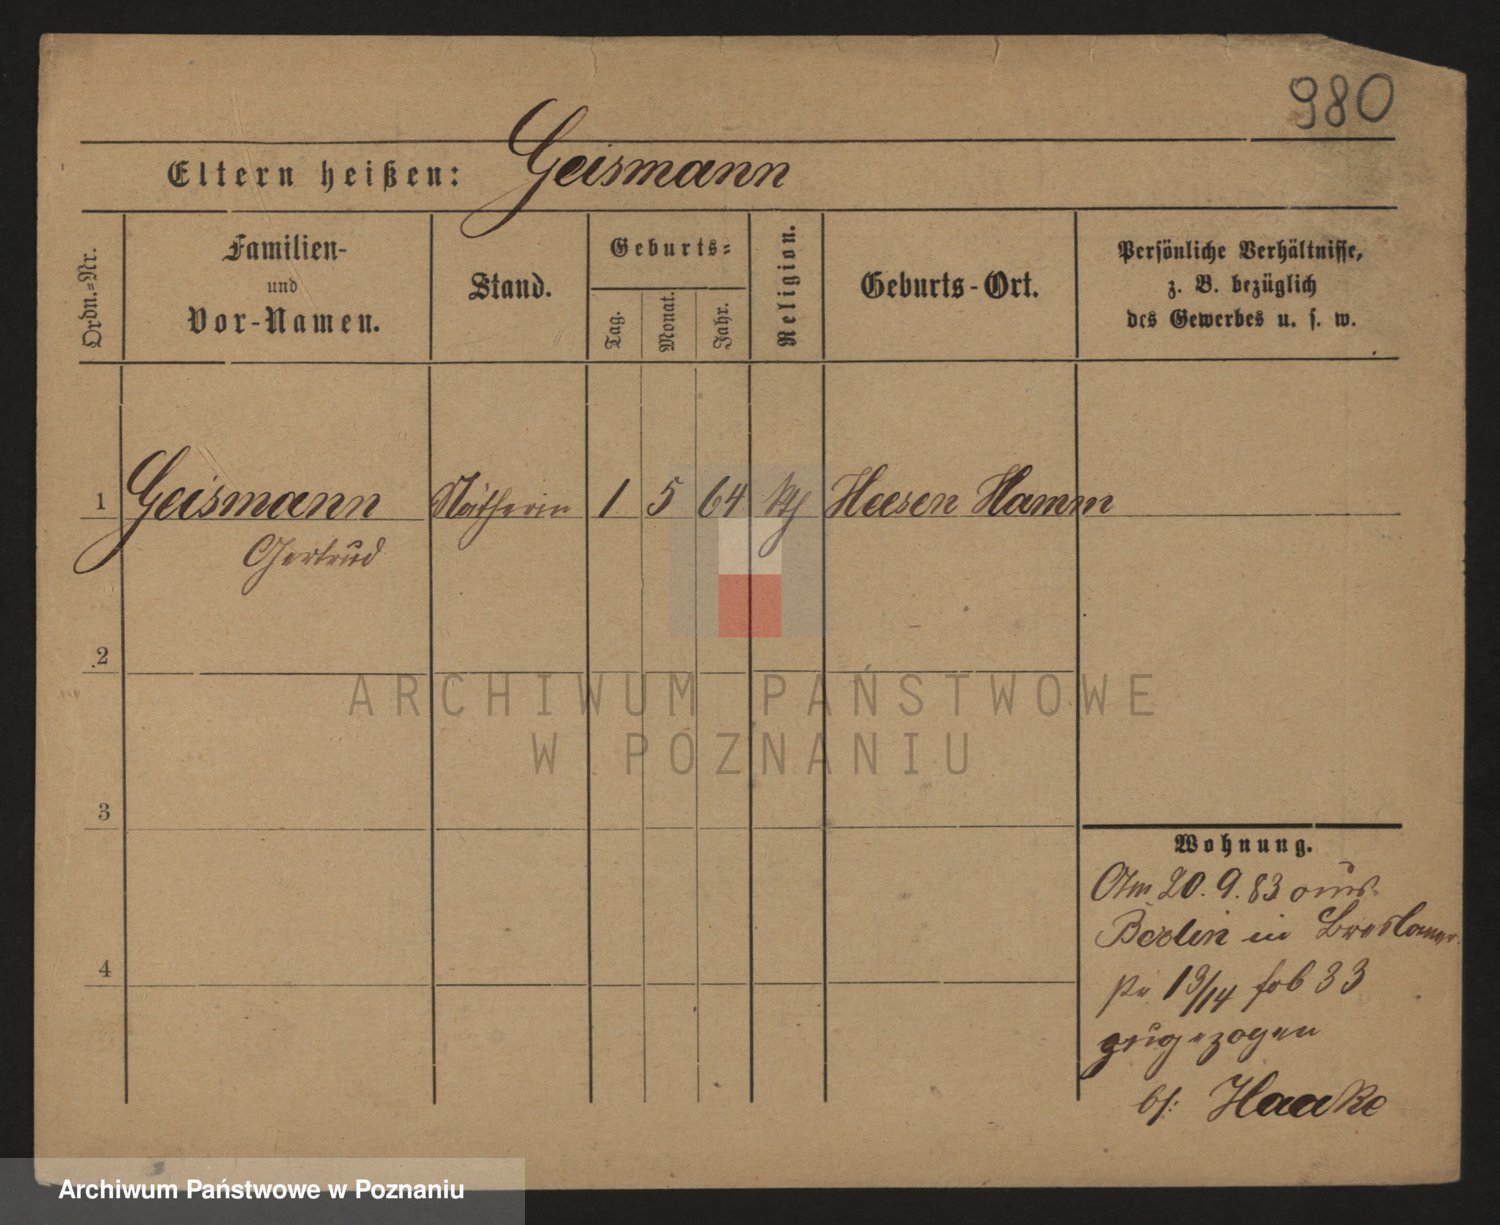 980
Eltern heißen: Geismann
Ordn.-Nr.
Familien-
und
Vor-Namen.
Stand.
Geburts-
Tag.
Monat.
Jahr.
Religion.
Geburts-Ort.
Persönliche Verhältnisse,
z. B. bezüglich
des Gewerbes u. s. w.
1 Geismann Nätherin 1 5 64 kth Heesen Hamm
Gertrud
2
3
4
Wohnung.
Am 20. 9. 83 aus
Berlin in Breslauer
13/14 33
zugezogen
bei Haake
ARCHIWUM PAŃSTWOWE
W POZNANIU
Archiwum Państwowe w Poznaniu